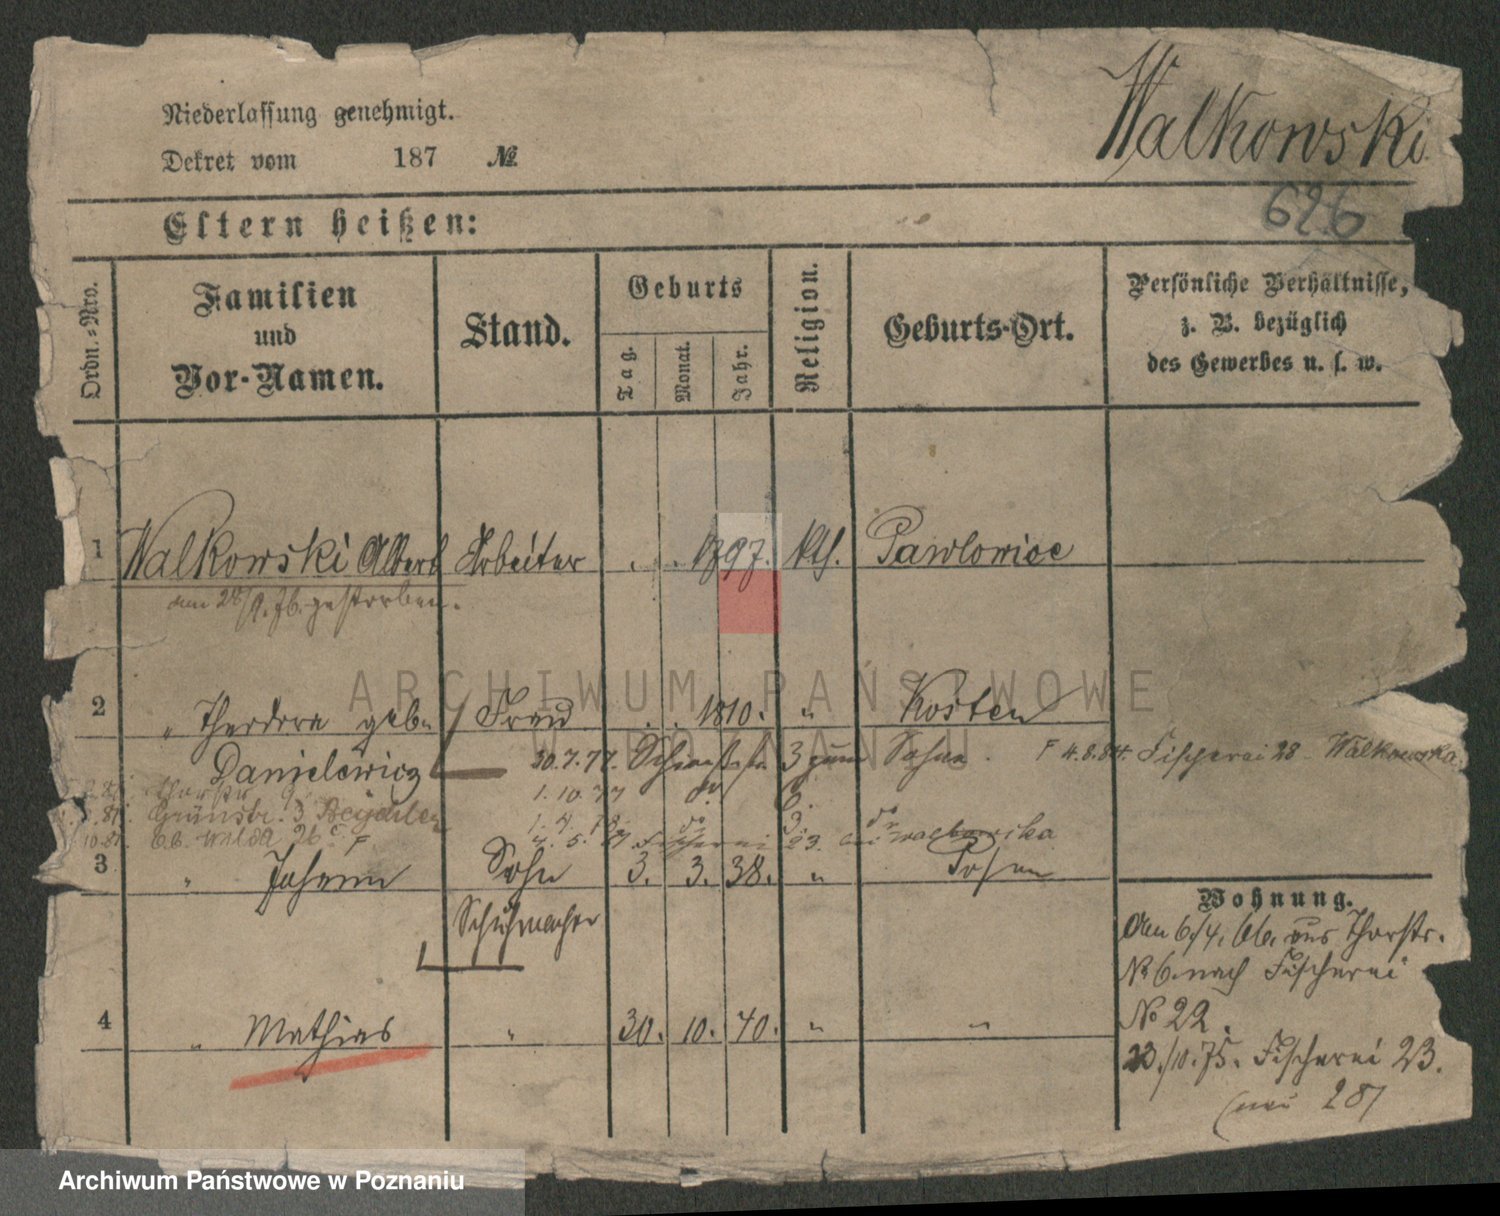 Walkowski
Niederlassung genehmigt.
Dekret vom 187 №
626
Eltern heißen:
Ordn.-Nro.
Familien
und
Vor-Namen.
Stand.
Geburts
Tag.
Monat.
Jahr.
Religion.
Geburts-Ort.
Persönliche Verhältnisse,
z. B. bezüglich
des Gewerbes u. s. w.
1 Walkowski Albert Arbeiter . . 1797. kth. Pawlowice
am 28/9. 76. gestorben.
ARCHIWUM PAŃSTWOWE
W POZNANIU
2 " Theodora geb. Frau . . 1810. " Kosten
Danielewicz
30.7.77. 3 zum Sohn. F 4.8.84. Fischerei 28 Walkowska
1.10.77 do
Grünstr. 3
Wilda
3 " Johann Sohn 3. 3. 38. " Posen
Schuhmacher
4 " Mathias " 30. 10. 40. " "
Wohnung.
Am 6./4. 66. aus Thorstr.
№ 6. nach Fischerei
No 22.
23./10. 75. Fischerei 23.
(neu 28)
Archiwum Państwowe w Poznaniu